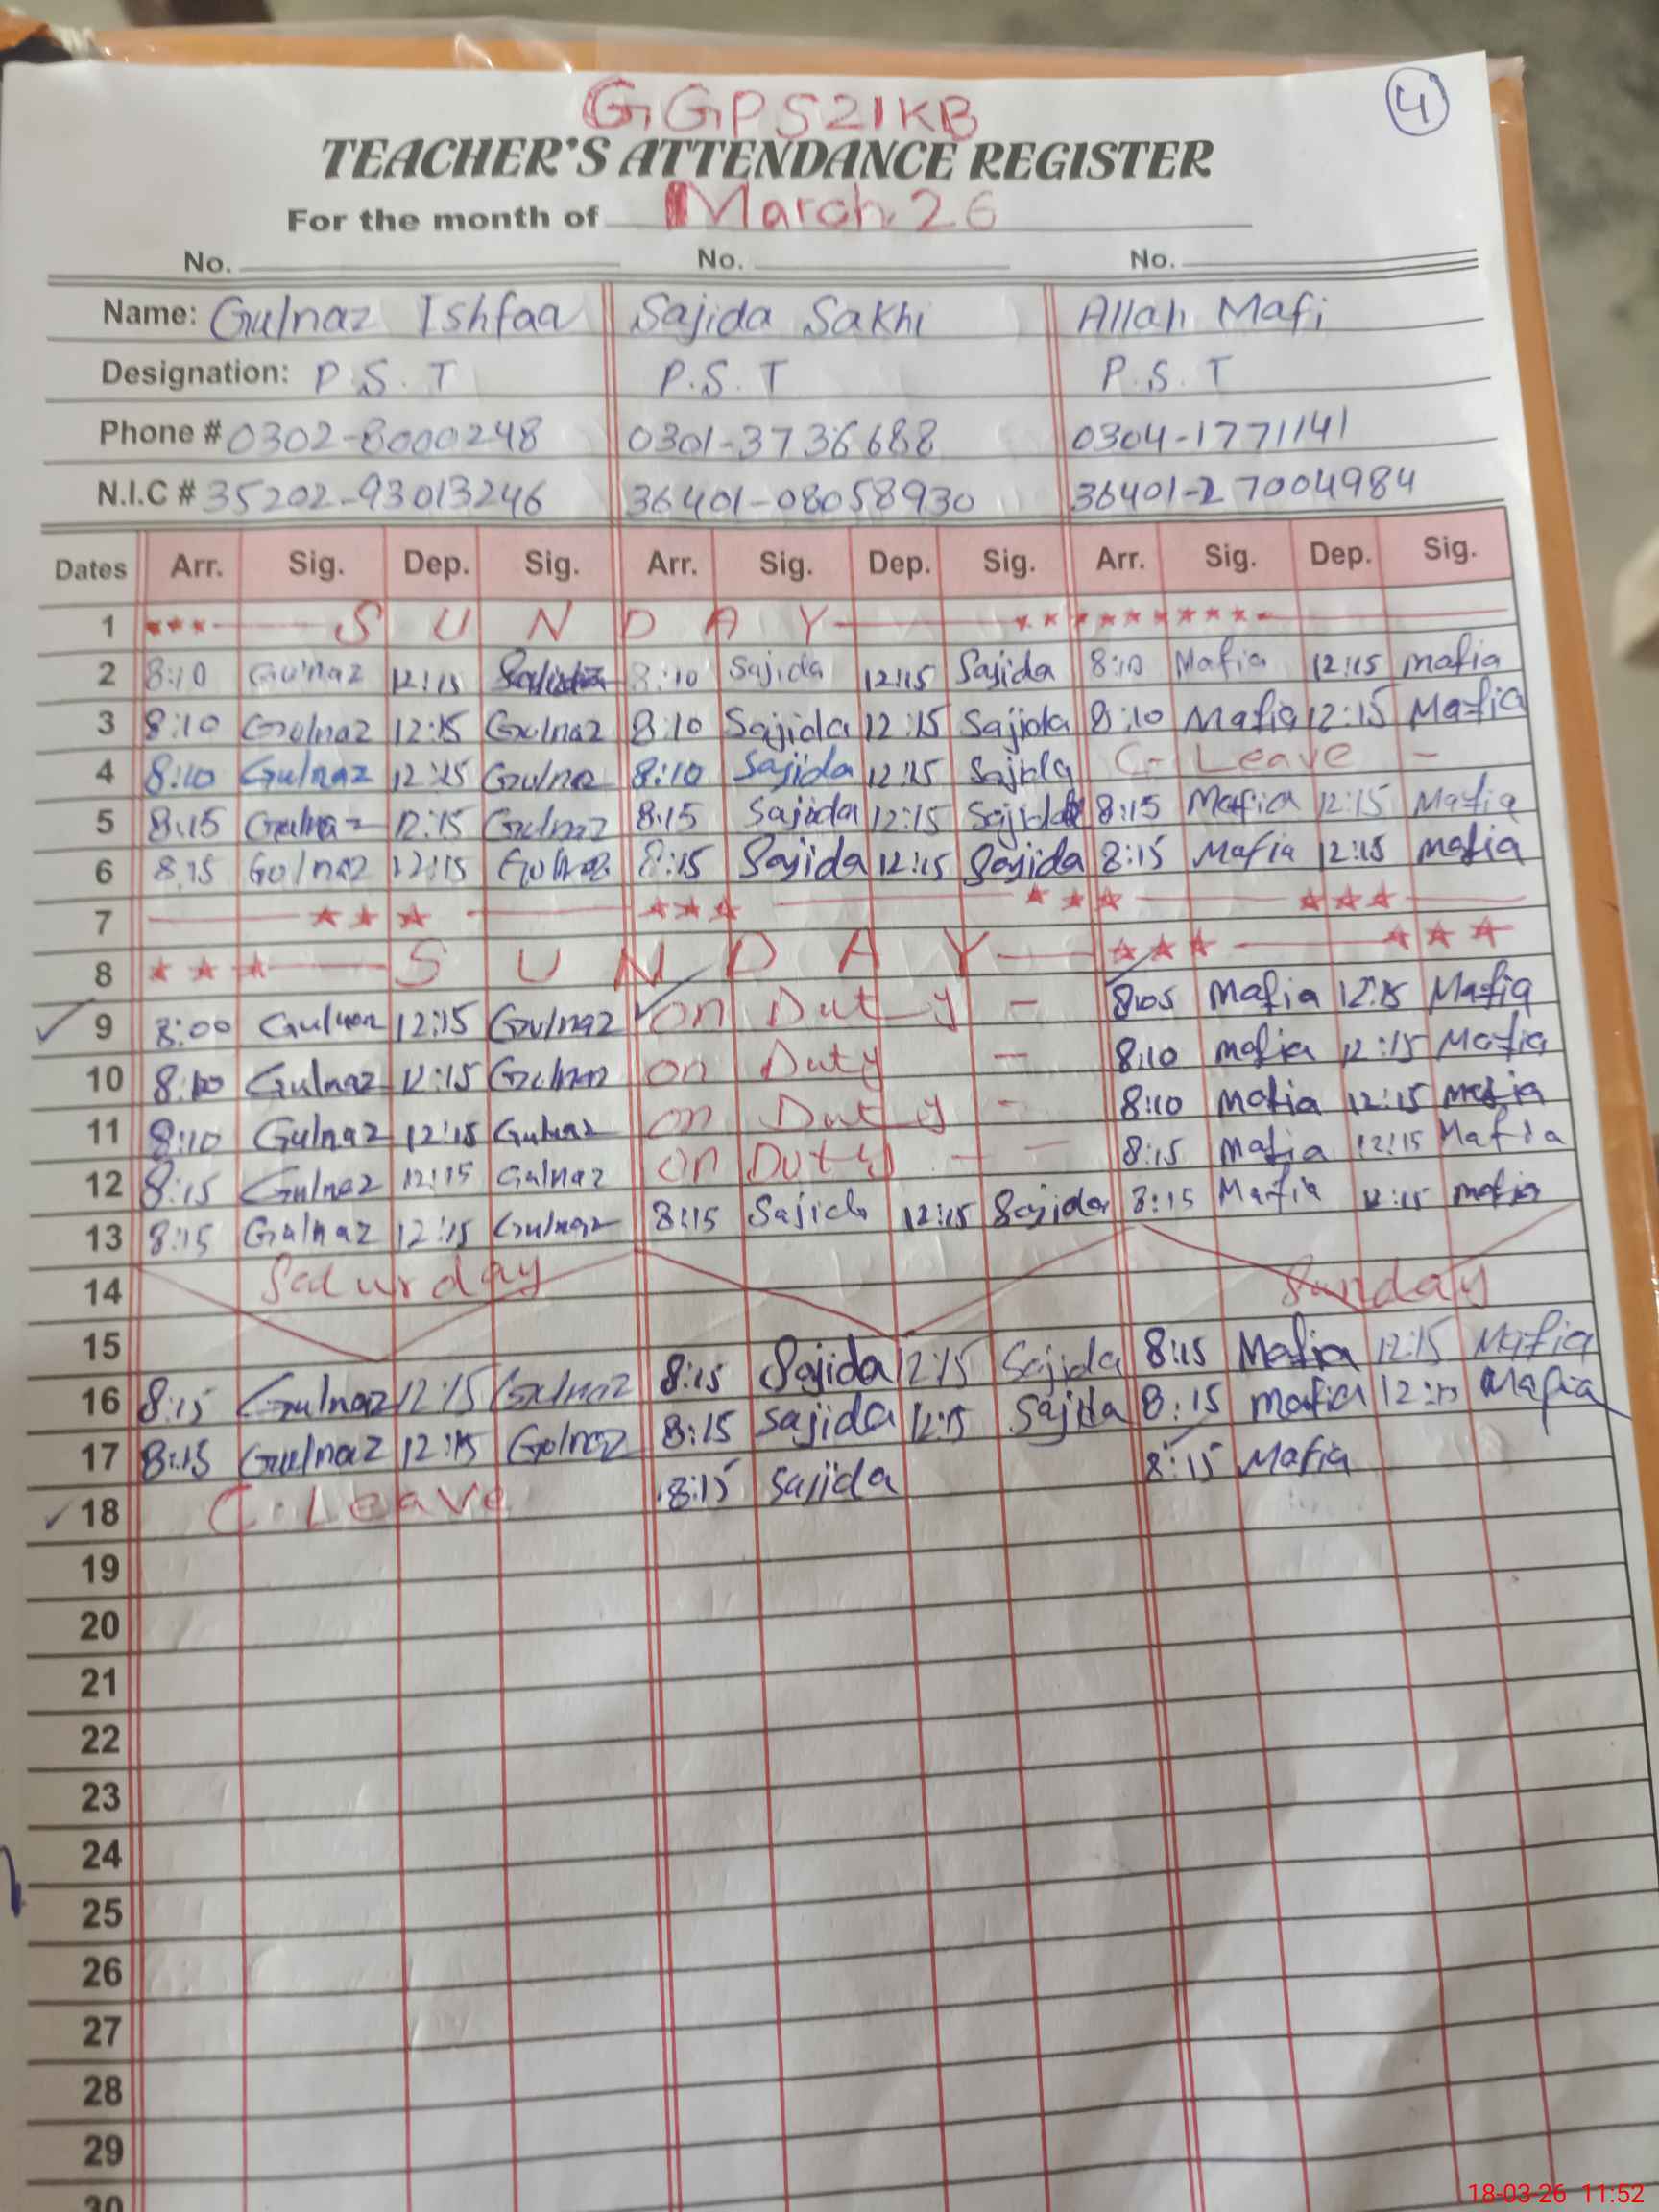 4
GGPS21KB
TEACHER'S ATTENDANCE REGISTER
For the month of March 26
No. No. No.
Name: Gulnaz Ishfaa Sajida Sakhi Allah Mafi
Designation: P.S.T P.S.T P.S.T
Phone # 0302-8000248 0301-3736688 0304-1771141
N.I.C # 35202-93013246 36401-08058930 36401-27004984
Dates Arr. Sig. Dep. Sig. Arr. Sig. Dep. Sig. Arr. Sig. Dep. Sig.
1 SUNDAY
2 8:10 Gulnaz 12:15 8:10 Sajida 12:15 Sajida 8:10 Mafia 12:15 mafia
3 8:10 Gulnaz 12:15 Gulnaz 8:10 Sajida 12:15 Sajida 8:10 Mafia 12:15 Mafia
4 8:10 Gulnaz 12:15 Gulna 8:10 Sajida 12:15 Sajida C-Leave -
5 8:15 Gulnaz 12:15 Gulnaz 8:15 Sajida 12:15 Sajida 8:15 Mafia 12:15 Mafia
6 8:15 Gulnaz 12:15 Gulnaz 8:15 Sajida 12:15 Sajida 8:15 Mafia 12:15 mafia
7
8 SUNDAY
9 8:00 Gulnaz 12:15 Gulnaz on Duty - 8:05 Mafia 12:15 Mafia
10 8:10 Gulnaz 12:15 Gulnaz on Duty - 8:10 mafia 12:15 Mafia
11 8:10 Gulnaz 12:15 Gulnaz on Duty - 8:10 Mafia 12:15 mafia
12 8:15 Gulnaz 12:15 Gulnaz on Duty - - 8:15 Mafia 12:15 Mafia
13 8:15 Gulnaz 12:15 Gulnaz 8:15 Sajida 12:15 Sajida 8:15 Mafia 12:15 mafia
14 Saturday Sunday
15
16 8:15 Gulnaz 12:15 Gulnaz 8:15 Sajida 12:15 Sajida 8:15 Mafia 12:15 Mafia
17 8:15 Gulnaz 12:15 Gulnaz 8:15 Sajida 12:15 Sajida 8:15 mafia 12:15 Mafia
18 C.Leave 8:15 Sajida 8:15 Mafia
19
20
21
22
23
24
25
26
27
28
29
30
18-03-26 11:52